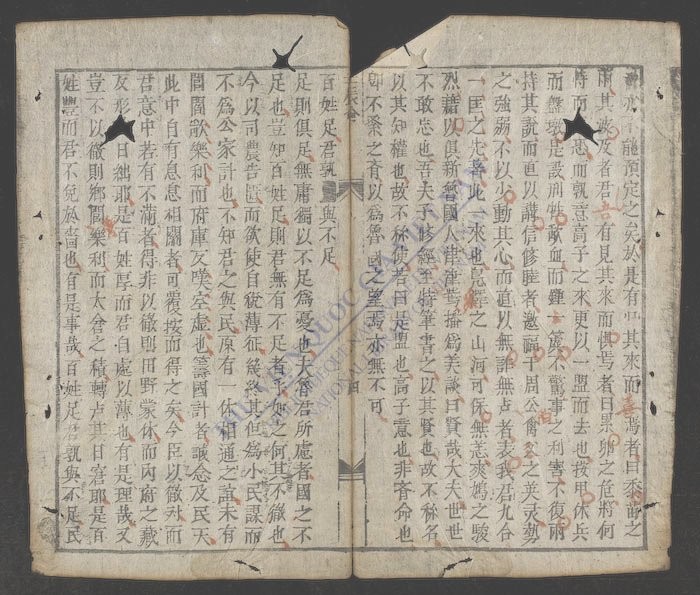 能預定之矣於是有卜其來而喜焉者曰黍苗之
其波及者君言有見其來而懼焉者曰累卵之危將何
恃而恐而孰意高子之來更以一盟而去也我甲休兵
而盤壇是設刑牲歃血而鍾簴不驚事之利害不復兩
持其說而直以講信修睦者邀福于周公禽父之美灵勢
之強弱不以少動其心而直以無詐無虞者表我君九合
一匡之先此一來也晃繹之山河可保無恙爽嫣之駿
烈藉以俱新魯國人津津焉播為美談曰賢哉大夫也世世
不敢忘也吾夫子修經至特筆書之以其賢也故不称名
以其知權也故不称使若曰是盟也高子意也非齊命也
即不系之有以為魯國之望焉亦無不可
百姓足君孰與不足
足則俱足無庸獨以不足為憂也夫魯君所慮者國之不
足也豈知百姓足則君無有不足者乎如之何其不徹也
今以司農告匱而欲使自從薄征幾疑其但為小民謀而
不為公家計也不知君之與民原有一体相通之誼未有
閭閻歌樂利而府庫反嘆空虛也籌國計者誠念及民天
此中自有息息相關者可覆按而得之矣今臣以徹對而
君意中若有不滿者得非以徹則田野蒙休而內府之藏
反形日絀耶是百姓厚而君自處以薄也有是理哉又
豈不以徹則鄉閭樂利而太倉之積轉卢其日窘耶是百
姓豐而君不免於嗇也有是事哉百姓足君孰與不足民